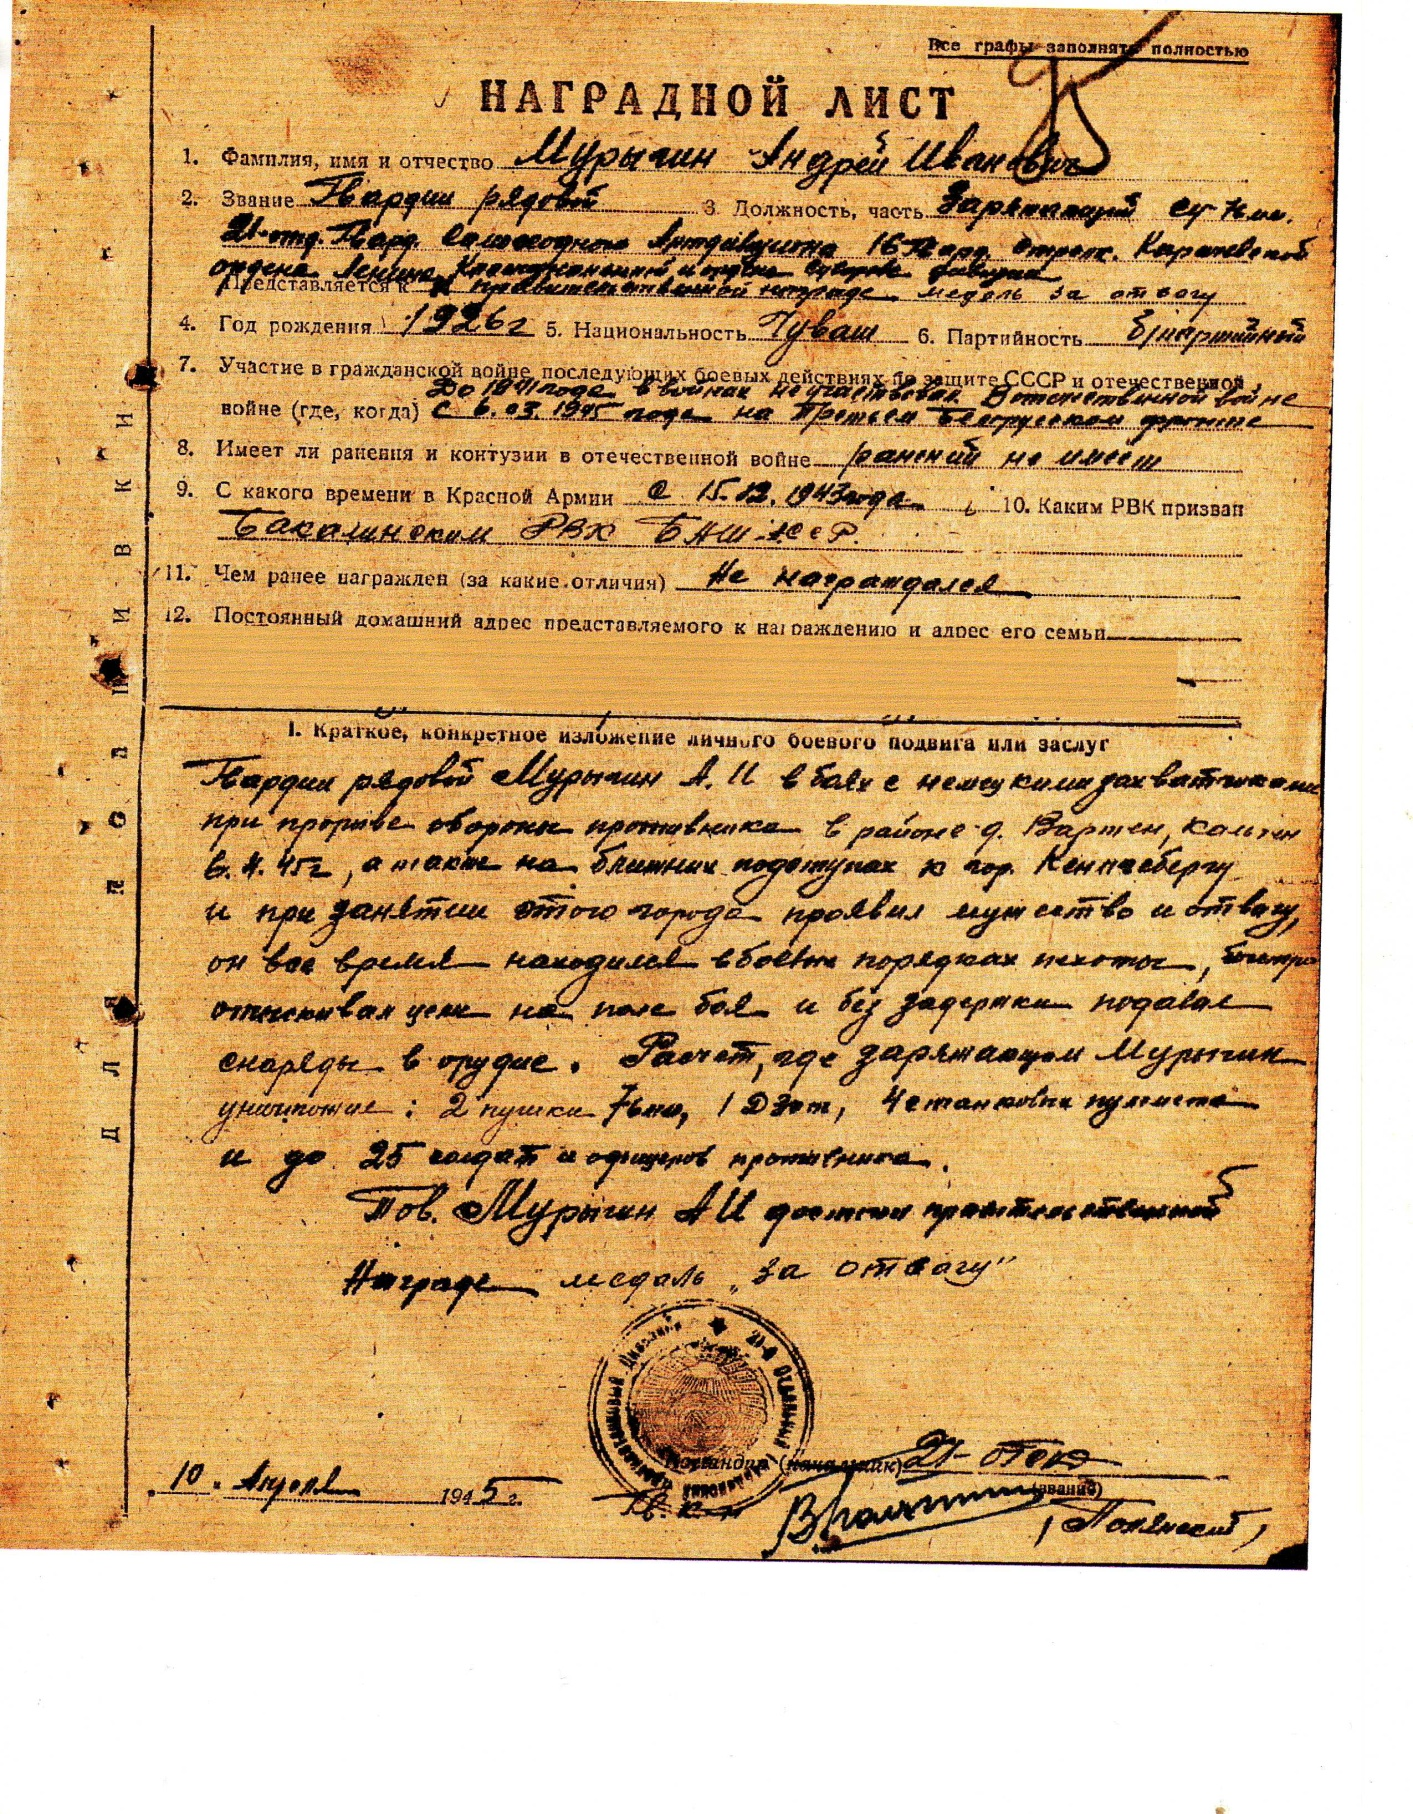 Все графы заполнять полностью
НАГРАДНОЙ ЛИСТ
1. Фамилия, имя и отчество Мурыгин Андрей Иванович
2. Звание Гвардии рядовой 3. Должность, часть Заряжающий СУ-76мм.
21-отд. Гвард. Самоходного Артдивизиона 16 Гвард. стрелк. Карачевской
ордена Ленина Краснознаменной и ордена Суворова дивизии
Представляется к правительственной награде медаль за отвагу
4. Год рождения 1926г 5. Национальность Чуваш 6. Партийность б/партийный
7. Участие в гражданской войне, последующих боевых действиях по защите СССР и отечественной
До 1941 года в войнах не участвовал. В отечественной войне
войне (где, когда) С 6.03.1945 года на Третьем Белорусском фронте
8. Имеет ли ранения и контузии в отечественной войне ранений не имеет
9. С какого времени в Красной Армии С 15.12.1943 года 10. Каким РВК призван
Бакалинским РВК БАШ.АССР.
11. Чем ранее награжден (за какие отличия) Не награждался
12. Постоянный домашний адрес представляемого к награждению и адрес его семьи
I. Краткое, конкретное изложение личного боевого подвига или заслуг
Гвардии рядовой Мурыгин А. И в боях с немецкими захватчиками
при прорыве обороны противника в районе д. Вартен,
6.4.45г, а также на ближних подступах к гор. Кенигсбергу
и при занятии этого города проявил мужество и отвагу,
он все время находился в боевых порядках пехоты, быстро
отыскивал цели на поле боя и без задержки подавал
снаряды в орудие. Расчет, где заряжающем Мурыгин
уничтожил: 2 пушки 76мм, 1 Дзот, 4 станковых пулемета
и до 25 солдат и офицеров противника.
Тов. Мурыгин А И достоин правительственной
Награде медаль „за отвагу"
21-й Отдельный Гвардейский Самоходный Артиллерийский Дивизион
Командир (начальник) 21-
10. Апреля 1945 г.
Гв. (звание)
(Полянский)
ДЛЯ ПОДШИВКИ